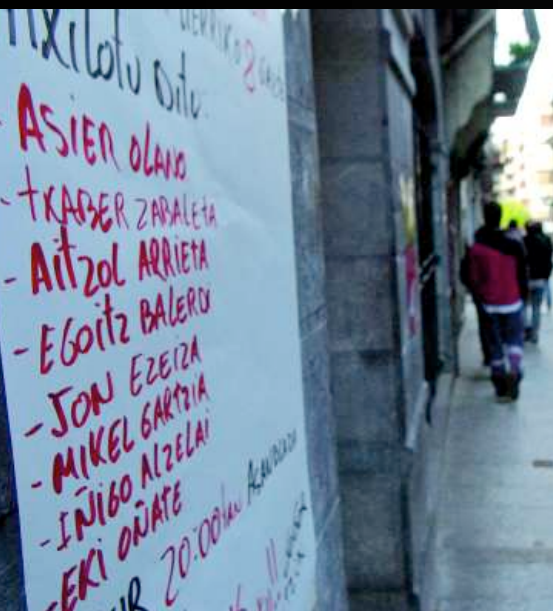 HERRIKO 8
Atxilotu ditu
- ASIER OLANO
- TXABER ZABALETA
- AitzOL ARRIETA
- EGOitz BALERDI
- JON EZEIZA
- MIKEL GARTZIA
- IÑIGO ALZELAI
- EKI OÑATE
20:00tan